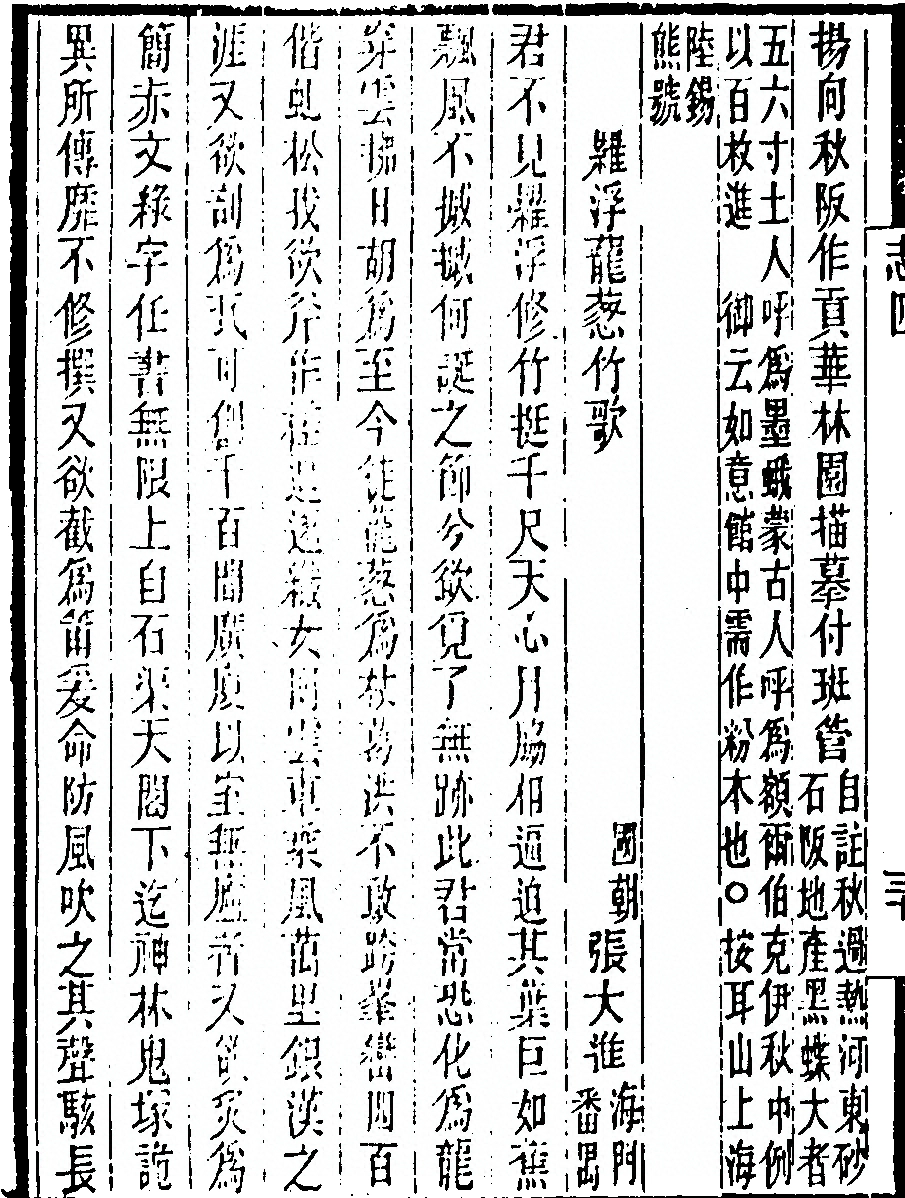 揚向秋阪作貢華林園描摹付班管自註秋過熱河東砂
石阪地產黑蝶大者
五六寸土人呼爲墨蛾蒙古人呼爲額爾伯克伊秋中例
以百枚進 御云如意館中需作粉本也○按耳山上海
陸錫
熊號
羅浮龍葱竹歌 國朝張大進海門
番禺
君不見羅浮修竹挺千尺天心月脇相逼迫其葉巨如蕉
飄風不搣搣何誕之節兮欲覓了無跡此君常恐化爲龍
穿雲拂日胡爲至今徒蘢葱爲杖葛洪不敢跨峯巒四百
偕虬松我欲斧作
女
雲車乘風萬里銀漢之
涯又欲剖爲瓦可
千百間廣廈以室無廬者又欲
爲
簡赤文綠字任書無限上自石渠天閣下迄神林鬼塚詭
異所傳靡不修撰又欲截爲笛爰命防風吹之其聲駭長